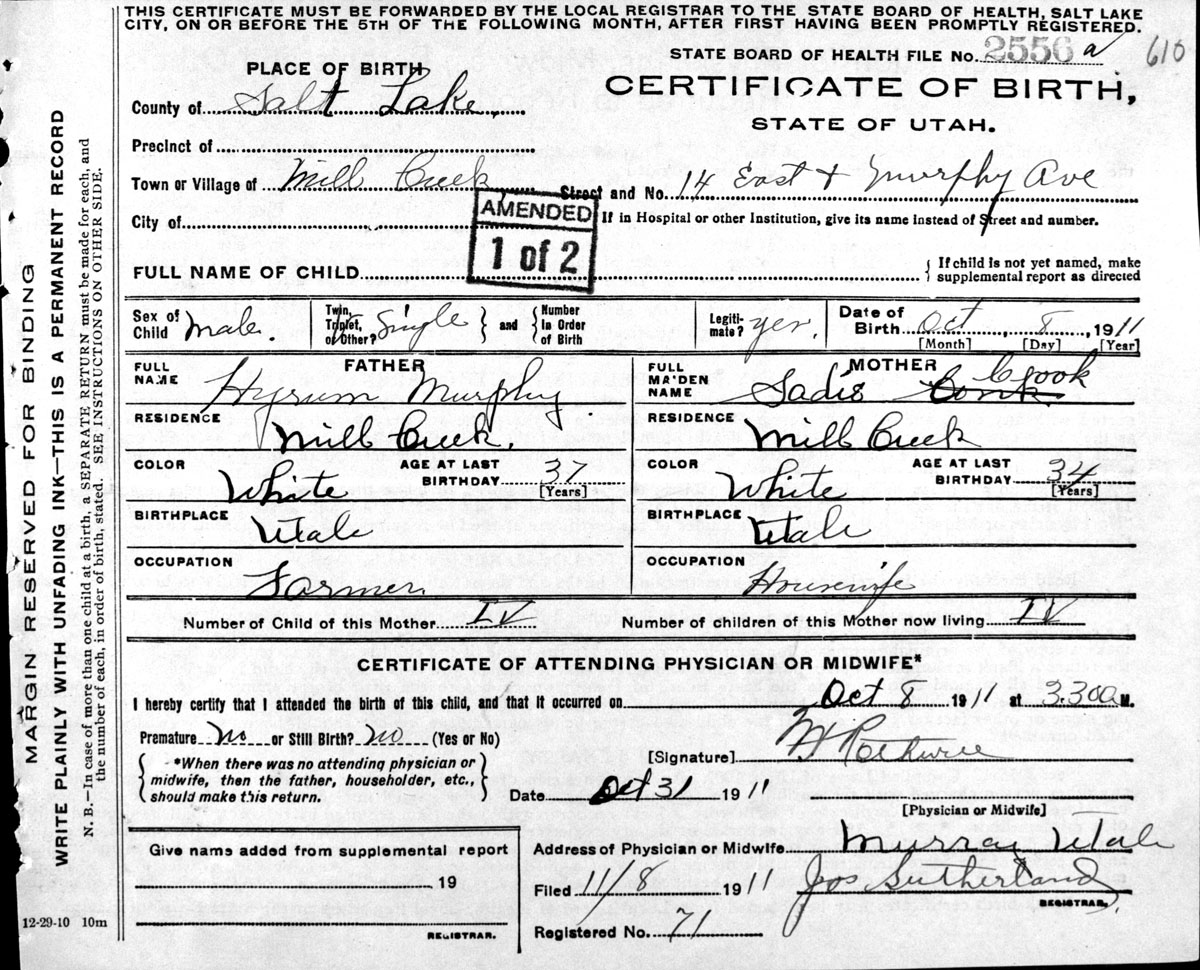 THIS CERTIFICATE MUST BE FORWARDED BY THE LOCAL REGISTRAR TO THE STATE BOARD OF HEALTH, SALT LAKE
CITY, ON OR BEFORE THE 5TH OF THE FOLLOWING MONTH, AFTER FIRST HAVING BEEN PROMPTLY REGISTERED.
STATE BOARD OF HEALTH FILE No. 2556 a 610
PLACE OF BIRTH
CERTIFICATE OF BIRTH,
County of Salt Lake,
STATE OF UTAH.
Precinct of
Town or Village of Mill Creek Street and No. 14 East + Murphy Ave
AMENDED
1 of 2
City of If in Hospital or other Institution, give its name instead of Street and number.
FULL NAME OF CHILD
If child is not yet named, make
supplemental report as directed
Sex of
Child Male.
Twin,
Triplet,
or Other? Single
and
Number
In Order
of Birth
Legiti-
mate? yes,
Date of
Birth Oct, 8, 1911
[Month] [Day] [Year]
FATHER
FULL
NAME Hyrum Murphy.
RESIDENCE
Mill Creek.
COLOR
White
AGE AT LAST
BIRTHDAY 37
[Years]
BIRTHPLACE
Utah
OCCUPATION
Farmer.
MOTHER
FULL
MAIDEN
NAME Sadie Cook
RESIDENCE
Mill Creek
COLOR
White
AGE AT LAST
BIRTHDAY 34
[Years]
BIRTHPLACE
Utah
OCCUPATION
Housewife
Number of Child of this Mother IV Number of children of this Mother now living IV
CERTIFICATE OF ATTENDING PHYSICIAN OR MIDWIFE*
I hereby certify that I attended the birth of this child, and that it occurred on Oct 8 1911 at 3.30a M.
Premature No or Still Birth? No (Yes or No)
[Signature]
*When there was no attending physician or
midwife, then the father, householder, etc.,
should make this return.
Date Oct 31 1911
[Physician or Midwife]
Give name added from supplemental report
19
REGISTRAR.
Address of Physician or Midwife Murray Utah
Filed 11/8 1911 Jos Sutherland
REGISTRAR.
Registered No. 71
12-29-10 10m
MARGIN RESERVED FOR BINDING
WRITE PLAINLY WITH UNFADING INK—THIS IS A PERMANENT RECORD
N. B.—In case of more than one child at a birth, a SEPARATE RETURN must be made for each, and
the number of each, in order of birth, stated. SEE INSTRUCTIONS ON OTHER SIDE.